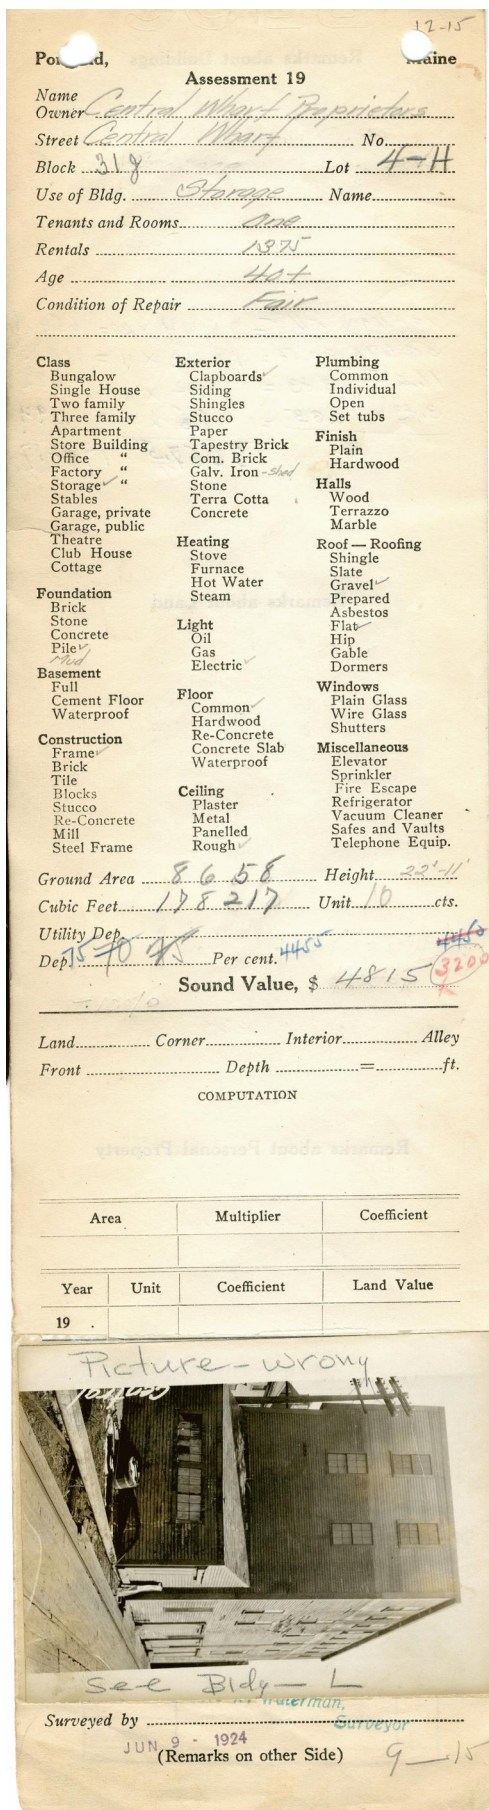 12-15
Maine
Assessment 19
Name
Owner Central Wharf Proprietors
Street Central Wharf No.
Block 318 Lot 4-H
Use of Bldg. Storage Name
Tenants and Rooms one
Rentals 1375
Age 40+
Condition of Repair Fair
Class
Bungalow
Single House
Two family
Three family
Apartment
Store Building
Office "
Factory "
Storage ✓ "
Stables
Garage, private
Garage, public
Theatre
Club House
Cottage
Foundation
Brick
Stone
Concrete
Pile ✓
Mud
Basement
Full
Cement Floor
Waterproof
Construction
Frame ✓
Brick
Tile
Blocks
Stucco
Re-Concrete
Mill
Steel Frame
Exterior
Clapboards ✓
Siding
Shingles
Stucco
Paper
Tapestry Brick
Com. Brick
Galv. Iron - shed
Stone
Terra Cotta
Concrete
Heating
Stove
Furnace
Hot Water
Steam
Light
Oil
Gas
Electric ✓
Floor
Common ✓
Hardwood
Re-Concrete
Concrete Slab
Waterproof
Ceiling
Plaster
Metal
Panelled
Rough ✓
Plumbing
Common
Individual
Open
Set tubs
Finish
Plain
Hardwood
Halls
Wood
Terrazzo
Marble
Roof — Roofing
Shingle
Slate
Gravel ✓
Prepared
Asbestos
Flat ✓
Hip
Gable
Dormers
Windows
Plain Glass
Wire Glass
Shutters
Miscellaneous
Elevator
Sprinkler
Fire Escape
Refrigerator
Vacuum Cleaner
Safes and Vaults
Telephone Equip.
Ground Area 8658 Height 22'-11"
Cubic Feet 178217 Unit 10 cts.
Utility Dep. 4450
Dep. 75 70 75 Per cent. 4455
Sound Value, $ 4815 3200
Land Corner Interior Alley
Front Depth = ft.
COMPUTATION
Area Multiplier Coefficient
Year Unit Coefficient Land Value
19
Picture - wrong
Central
See Bldg - L
Waterman,
Surveyed by Surveyor
JUN 9 - 1924
(Remarks on other Side)
9-15